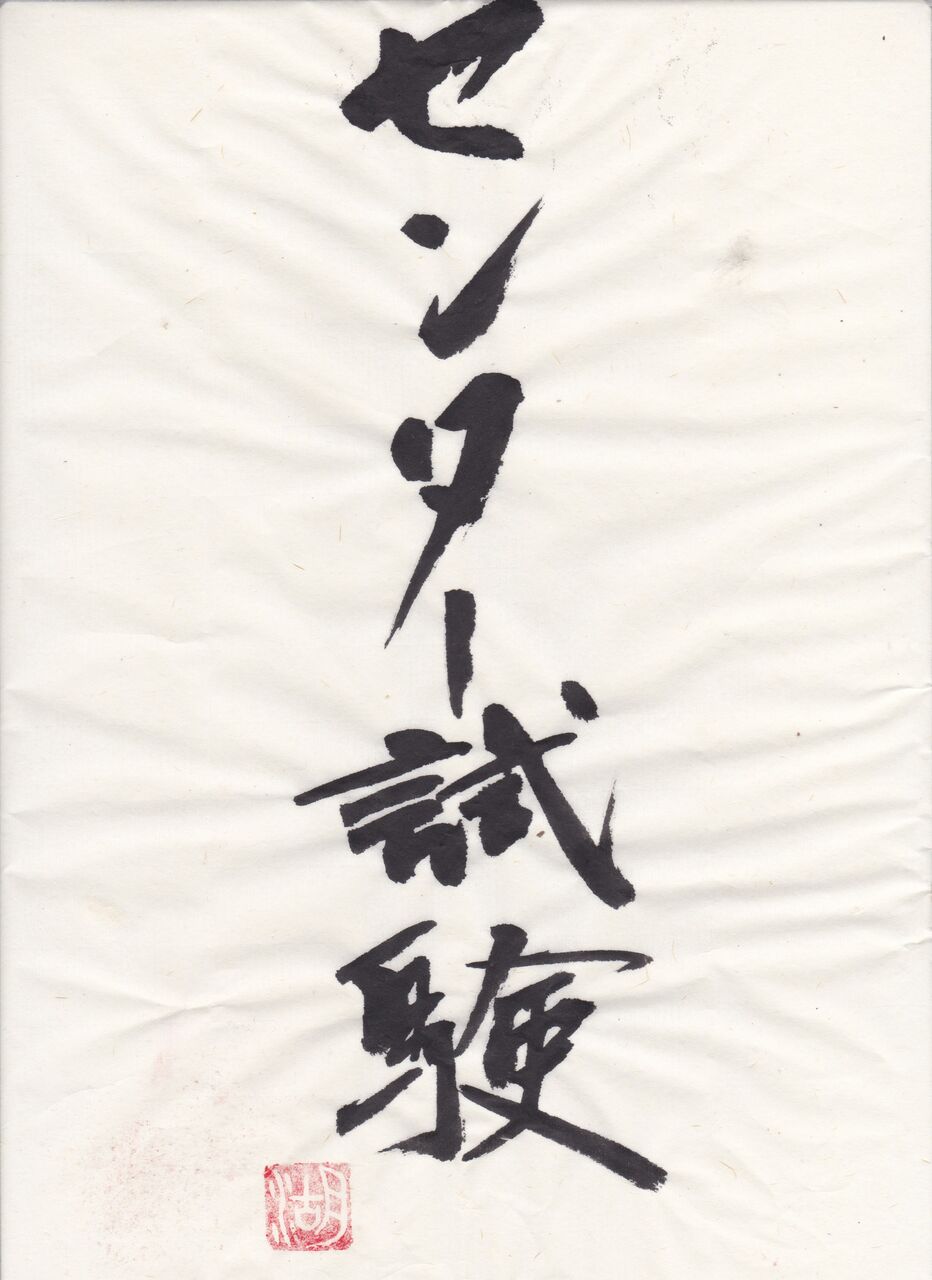 センター試験
湖